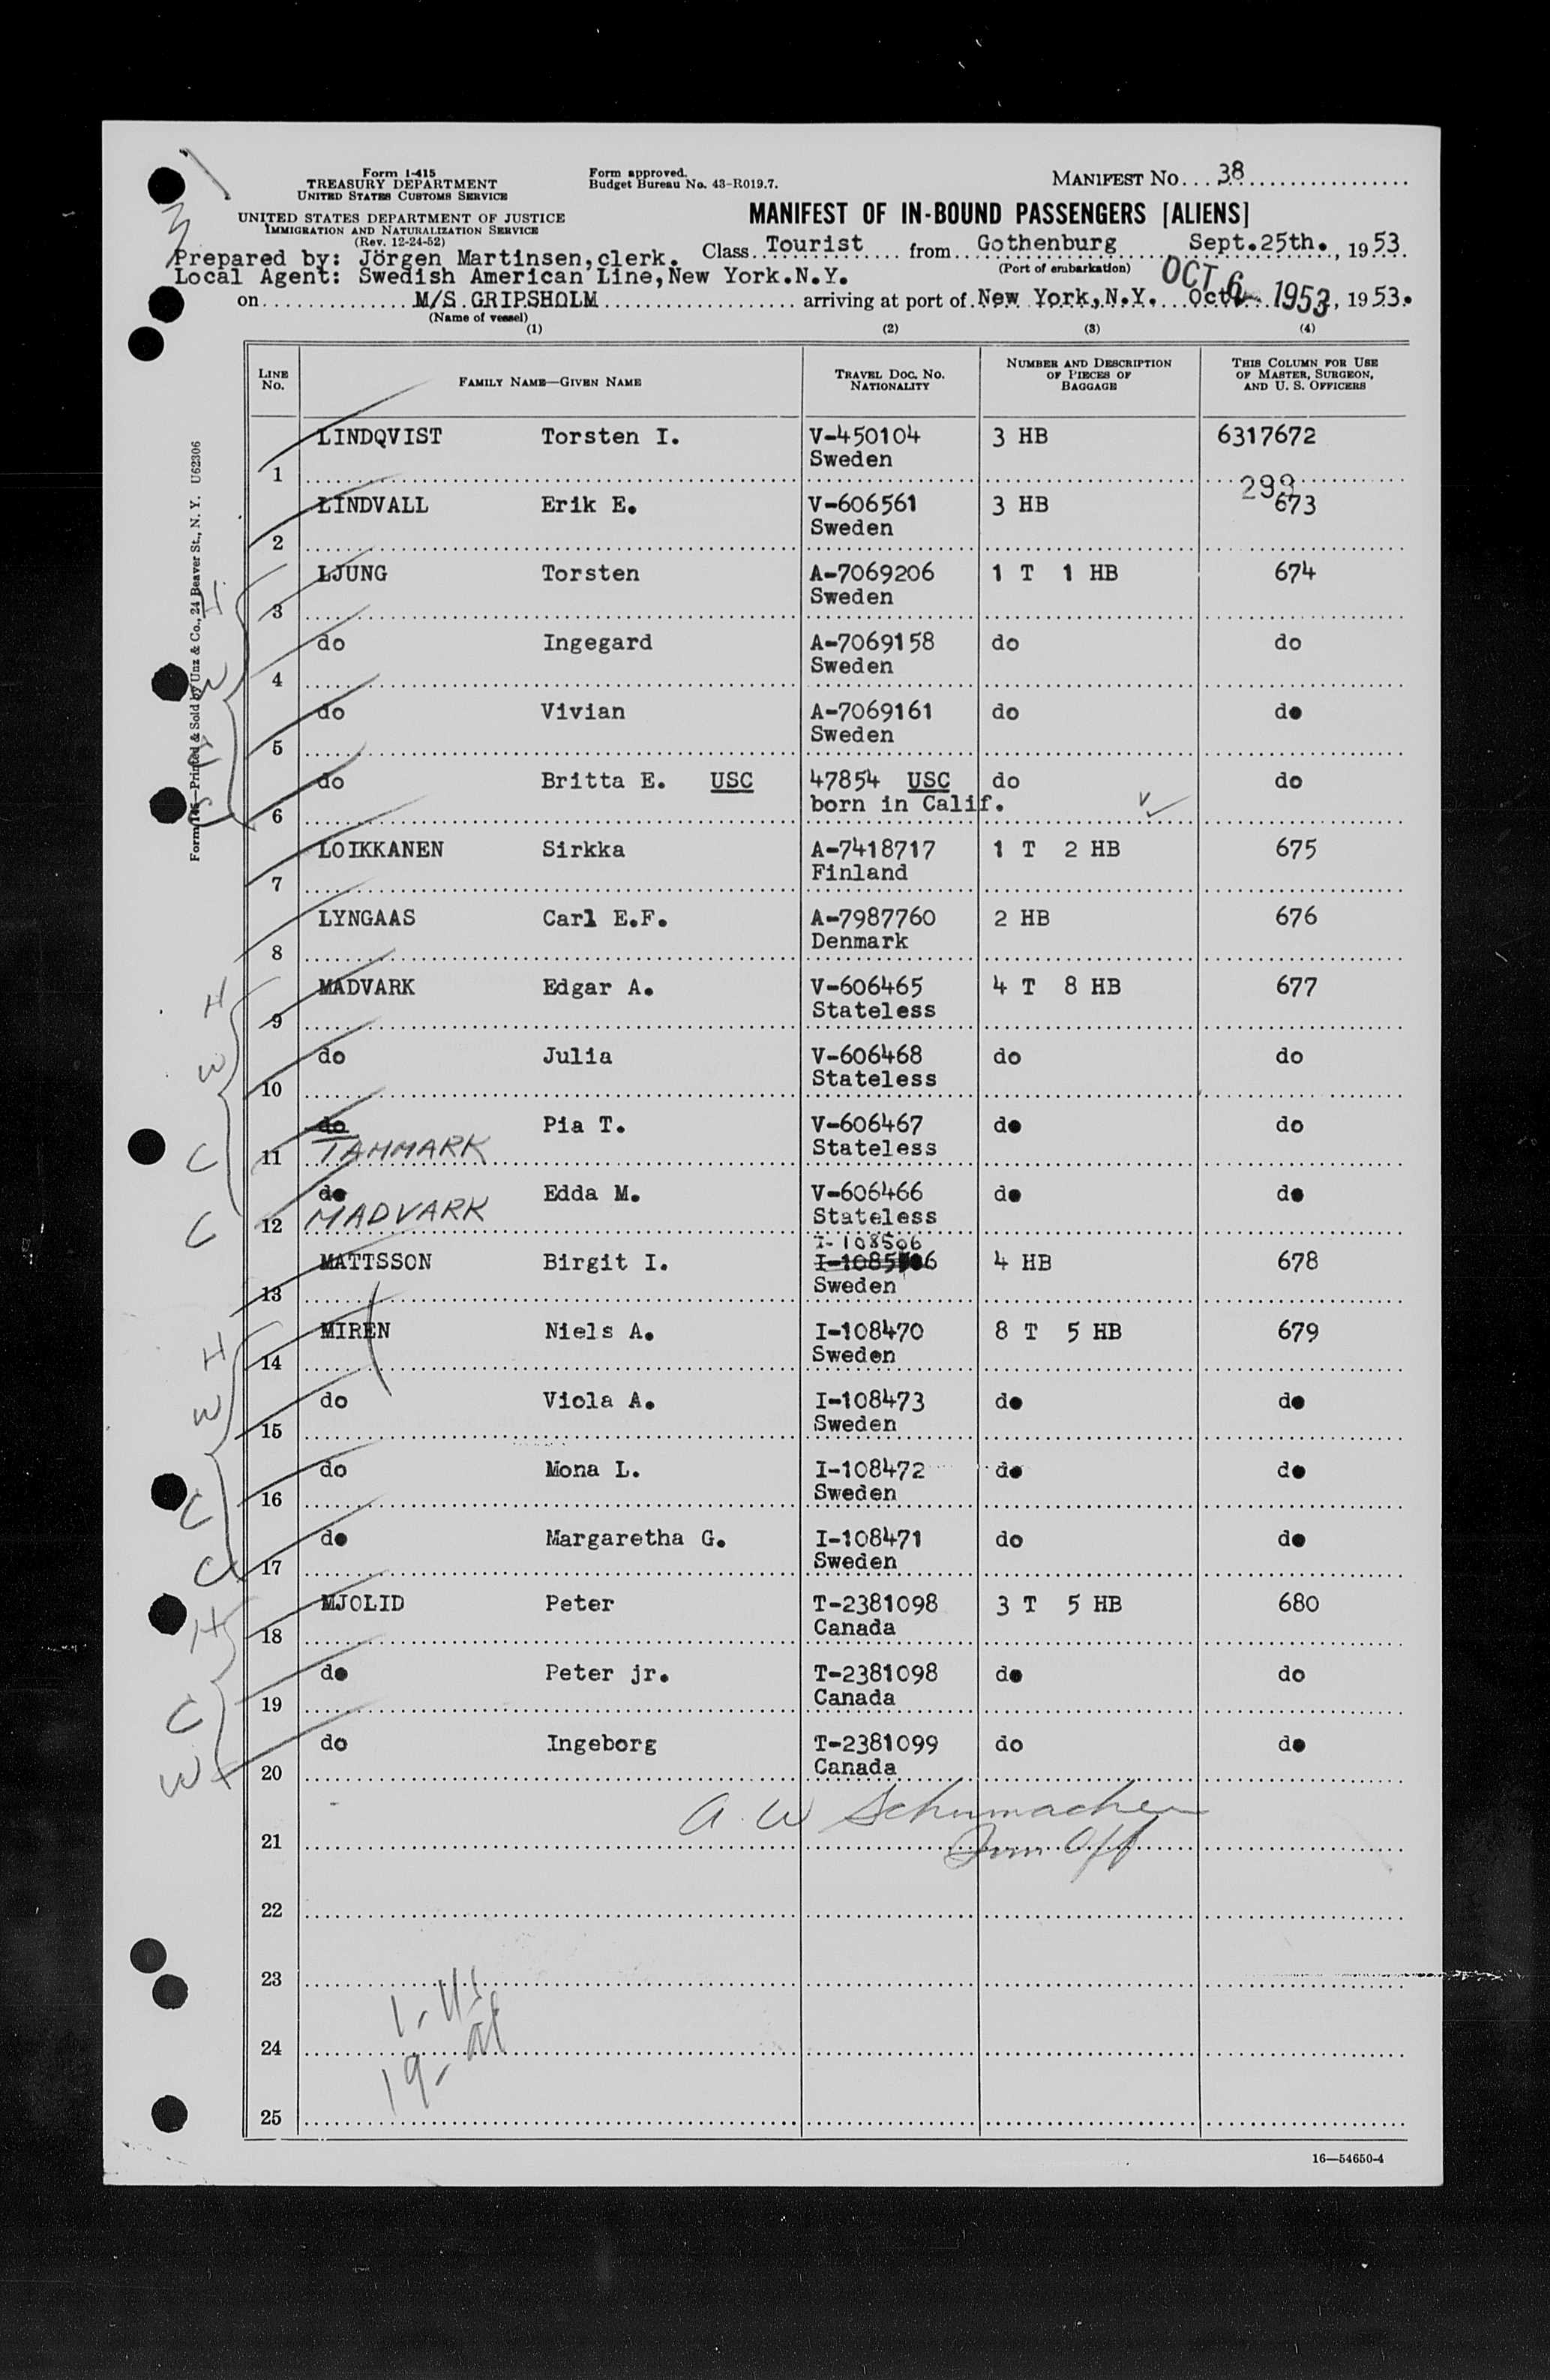 Form I-415
TREASURY DEPARTMENT
UNITED STATES CUSTOMS SERVICE
UNITED STATES DEPARTMENT OF JUSTICE
IMMIGRATION AND NATURALIZATION SERVICE
(Rev. 12-24-52)
Form approved.
Budget Bureau No. 43-R019.7.
MANIFEST NO. 38
MANIFEST OF IN-BOUND PASSENGERS [ALIENS]
Prepared by: Jörgen Martinsen,clerk. Class Tourist from Gothenburg Sept.25th., 1953.
(Port of embarkation)
Local Agent: Swedish American Line,New York.N.Y.
OCT 6 - 1953
on M/S GRIPSHOLM arriving at port of New York,N.Y. Oct. , 1953.
(Name of vessel)
(1) (2) (3) (4)
LINE NO. FAMILY NAME—GIVEN NAME TRAVEL DOC. NO. NATIONALITY NUMBER AND DESCRIPTION OF PIECES OF BAGGAGE THIS COLUMN FOR USE OF MASTER, SURGEON, AND U. S. OFFICERS
LINDQVIST Torsten I. V-450104 3 HB 6317672
1 Sweden
299
LINDVALL Erik E. V-606561 3 HB 673
2 Sweden
LJUNG Torsten A-7069206 1 T 1 HB 674
3 Sweden
do Ingegard A-7069158 do do
4 Sweden
do Vivian A-7069161 do do
5 Sweden
do Britta E. USC 47854 USC do do
6 born in Calif.
LOIKKANEN Sirkka A-7418717 1 T 2 HB 675
7 Finland
LYNGAAS Carl E.F. A-7987760 2 HB 676
8 Denmark
MADVARK Edgar A. V-606465 4 T 8 HB 677
9 Stateless
do Julia V-606468 do do
10 Stateless
do Pia T. V-606467 do do
11 TAMMARK Stateless
do Edda M. V-606466 do do
12 MADVARK Stateless
I-108506
MATTSSON Birgit I. 4 HB 678
13 Sweden
MIREN Niels A. I-108470 8 T 5 HB 679
14 Sweden
do Viola A. I-108473 do do
15 Sweden
do Mona L. I-108472 do do
16 Sweden
do Margaretha G. I-108471 do do
17 Sweden
MJOLID Peter T-2381098 3 T 5 HB 680
18 Canada
do Peter jr. T-2381098 do do
19 Canada
do Ingeborg T-2381099 do do
20 Canada
A. W Schumacher
21 Imm Off
22
23
1-US
24
19-al
25
16—54650-4
H
W
C
C
H
W
C
C
H
C
W